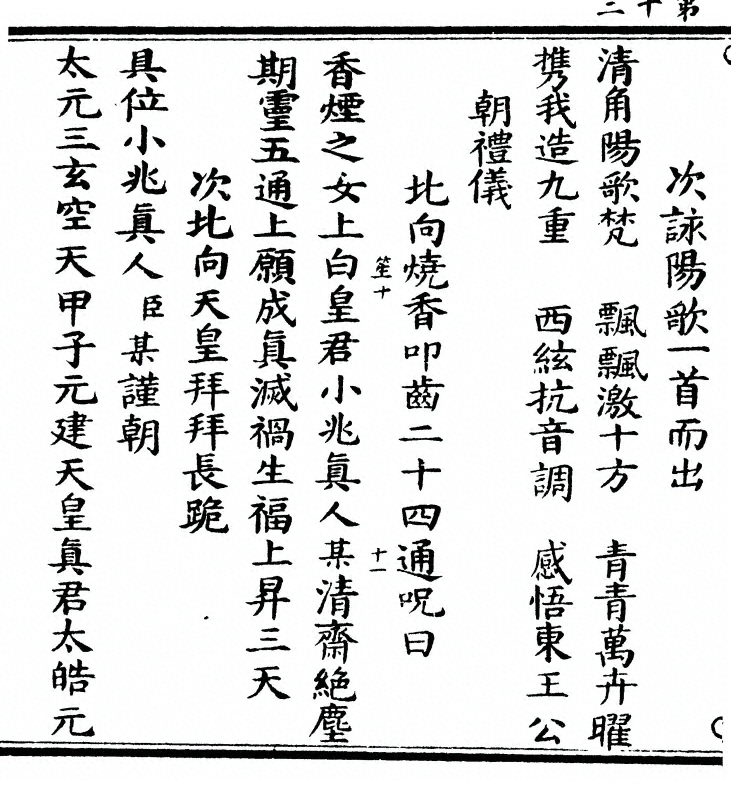 第十二
次詠陽歌一首而出
清角陽歌梵 飄飄激十方 青青萬卉曜
携我造九重 西絃抗音調 感悟東王公
朝禮儀
北向燒香叩齒二十四通呪曰
笙十 十一
香煙之女上白皇君小兆眞人某清齋絶塵
期靈五通上願成眞滅禍生福上昇三天
次北向天皇拜拜長跪
具位小兆眞人臣某謹朝
太元三玄空天甲子元建天皇眞君太皓元